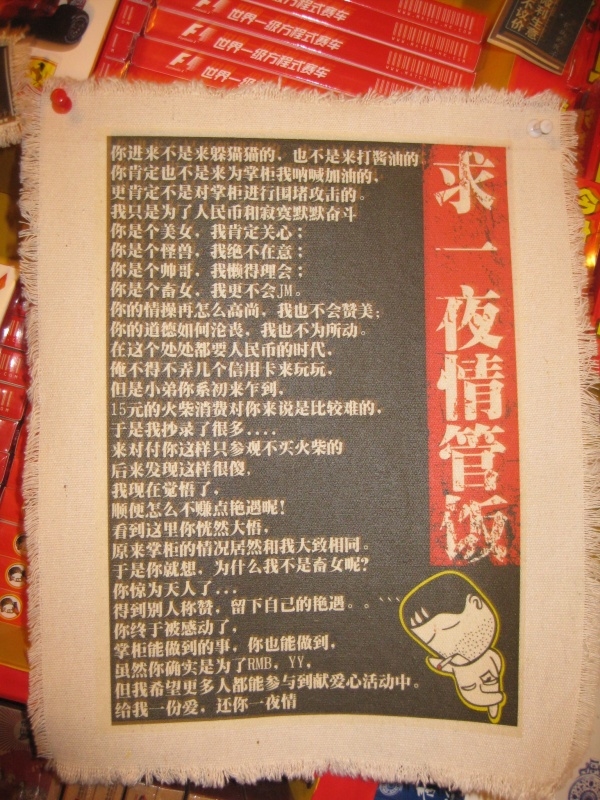 世界一级方程式赛车
F1 世界一级方程式赛车
F1 世界一级方程式赛车
求一夜情管饭
你进来不是来躲猫猫的，也不是来打酱油的
你肯定也不是来为掌柜我呐喊加油的，
更肯定不是对掌柜进行围堵攻击的。
我只是为了人民币和寂寞默默奋斗
你是个美女，我肯定关心；
你是个怪兽，我绝不在意；
你是个帅哥，我懒得理会；
你是个畜女，我更不会JM。
你的情操再怎么高尚，我也不会赞美；
你的道德如何沦丧，我也不为所动。
在这个处处都要人民币的时代，
俺不得不弄几个信用卡来玩玩，
但是小弟你系初来乍到，
15元的火柴消费对你来说是比较难的，
于是我抄录了很多....
来对付你这样只参观不买火柴的
后来发现这样很傻，
我现在觉悟了，
顺便怎么不赚点艳遇呢！
看到这里你恍然大悟，
原来掌柜的情况居然和我大致相同。
于是你就想，为什么我不是畜女呢？
你惊为天人了...
得到别人称赞，留下自己的艳遇。。```
你终于被感动了，
掌柜能做到的事，你也能做到，
虽然你确实是为了RMB，YY，
但我希望更多人都能参与到献爱心活动中。
给我一份爱，还你一夜情